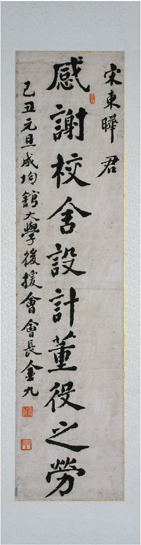 宋東曄 君
感謝校舍設計董役之勞
己丑元旦成均館大學後援會會長金九